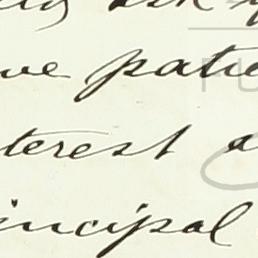 ask
ve patie
terest a
incipal